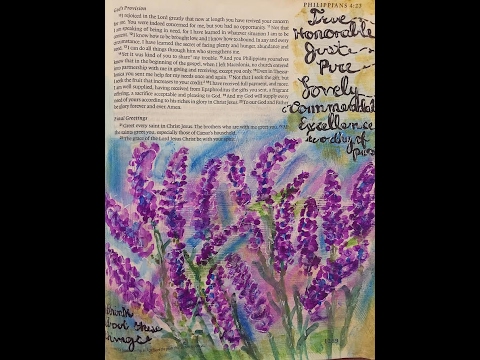 PHILIPPIANS 4:23
God's Provision
10 I rejoiced in the Lord greatly that now at length you have revived your concern
for me. You were indeed concerned for me, but you had no opportunity. 11 Not that
I am speaking of being in need, for I have learned in whatever situation I am to be
content. 12 I know how to be brought low, and I know how to abound. In any and every
circumstance, I have learned the secret of facing plenty and hunger, abundance and
need. 13 I can do all things through him who strengthens me.
14 Yet it was kind of you to share my trouble. 15 And you Philippians yourselves
know that in the beginning of the gospel, when I left Macedonia, no church entered
into partnership with me in giving and receiving, except you only. 16 Even in Thessa-
lonica you sent me help for my needs once and again. 17 Not that I seek the gift, but
I seek the fruit that increases to your credit. 18 I have received full payment, and more.
I am well supplied, having received from Epaphroditus the gifts you sent, a fragrant
offering, a sacrifice acceptable and pleasing to God. 19 And my God will supply every
need of yours according to his riches in glory in Christ Jesus. 20 To our God and Father
be glory forever and ever. Amen.
Final Greetings
21 Greet every saint in Christ Jesus. The brothers who are with me greet you. 22 All
the saints greet you, especially those of Caesar's household.
23 The grace of the Lord Jesus Christ be with your spirit.
True
Honorable
Just
Pure
Lovely
Commendable
Excellence
worthy of
think
about these
things